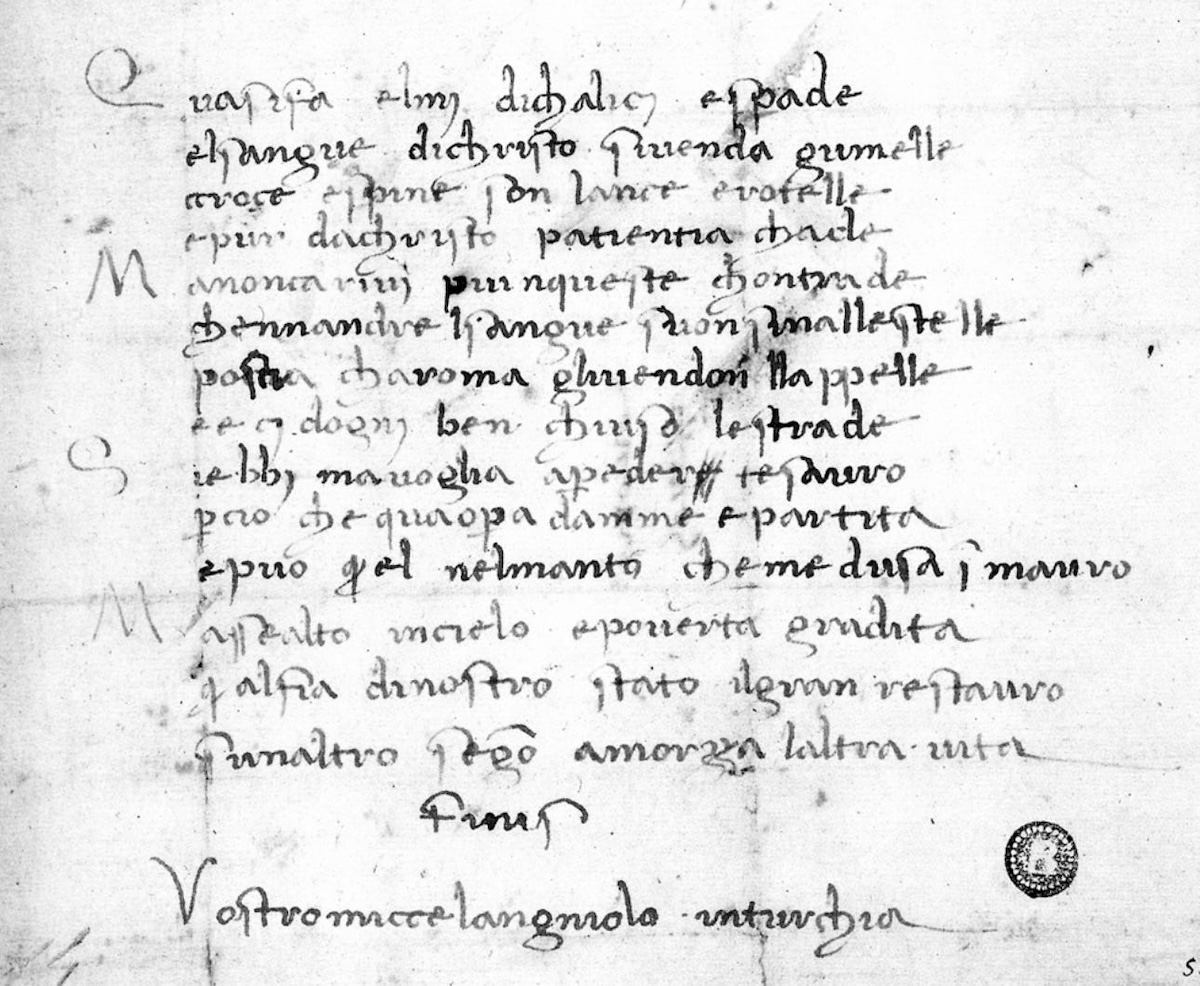 Qua si fa elmj di chalicj e spade
e l sangue di christo si vend a giumelle
e croce e spine son lance e rotelle
e pur da christo patientia chade
Ma non c arivj piu n queste chontrade
che n n andre l sangue suo n sin alle stelle
poscia ch a roma gli vendon la pelle
e e cj d ognj ben chiuso le strade
S i ebbi ma voglia a p[er]der tesauro
p[er] ciò che qua op[r]a da mm e e partita
e può q[u]el nel manto che medusa i[n] mauro
Ma se alto in cielo e poverta gradita
q[u]al fia di nostro stato il gran restauro
s un altro segō amorza l altra vita
Finis
Vostro miccelangniolo in turchia